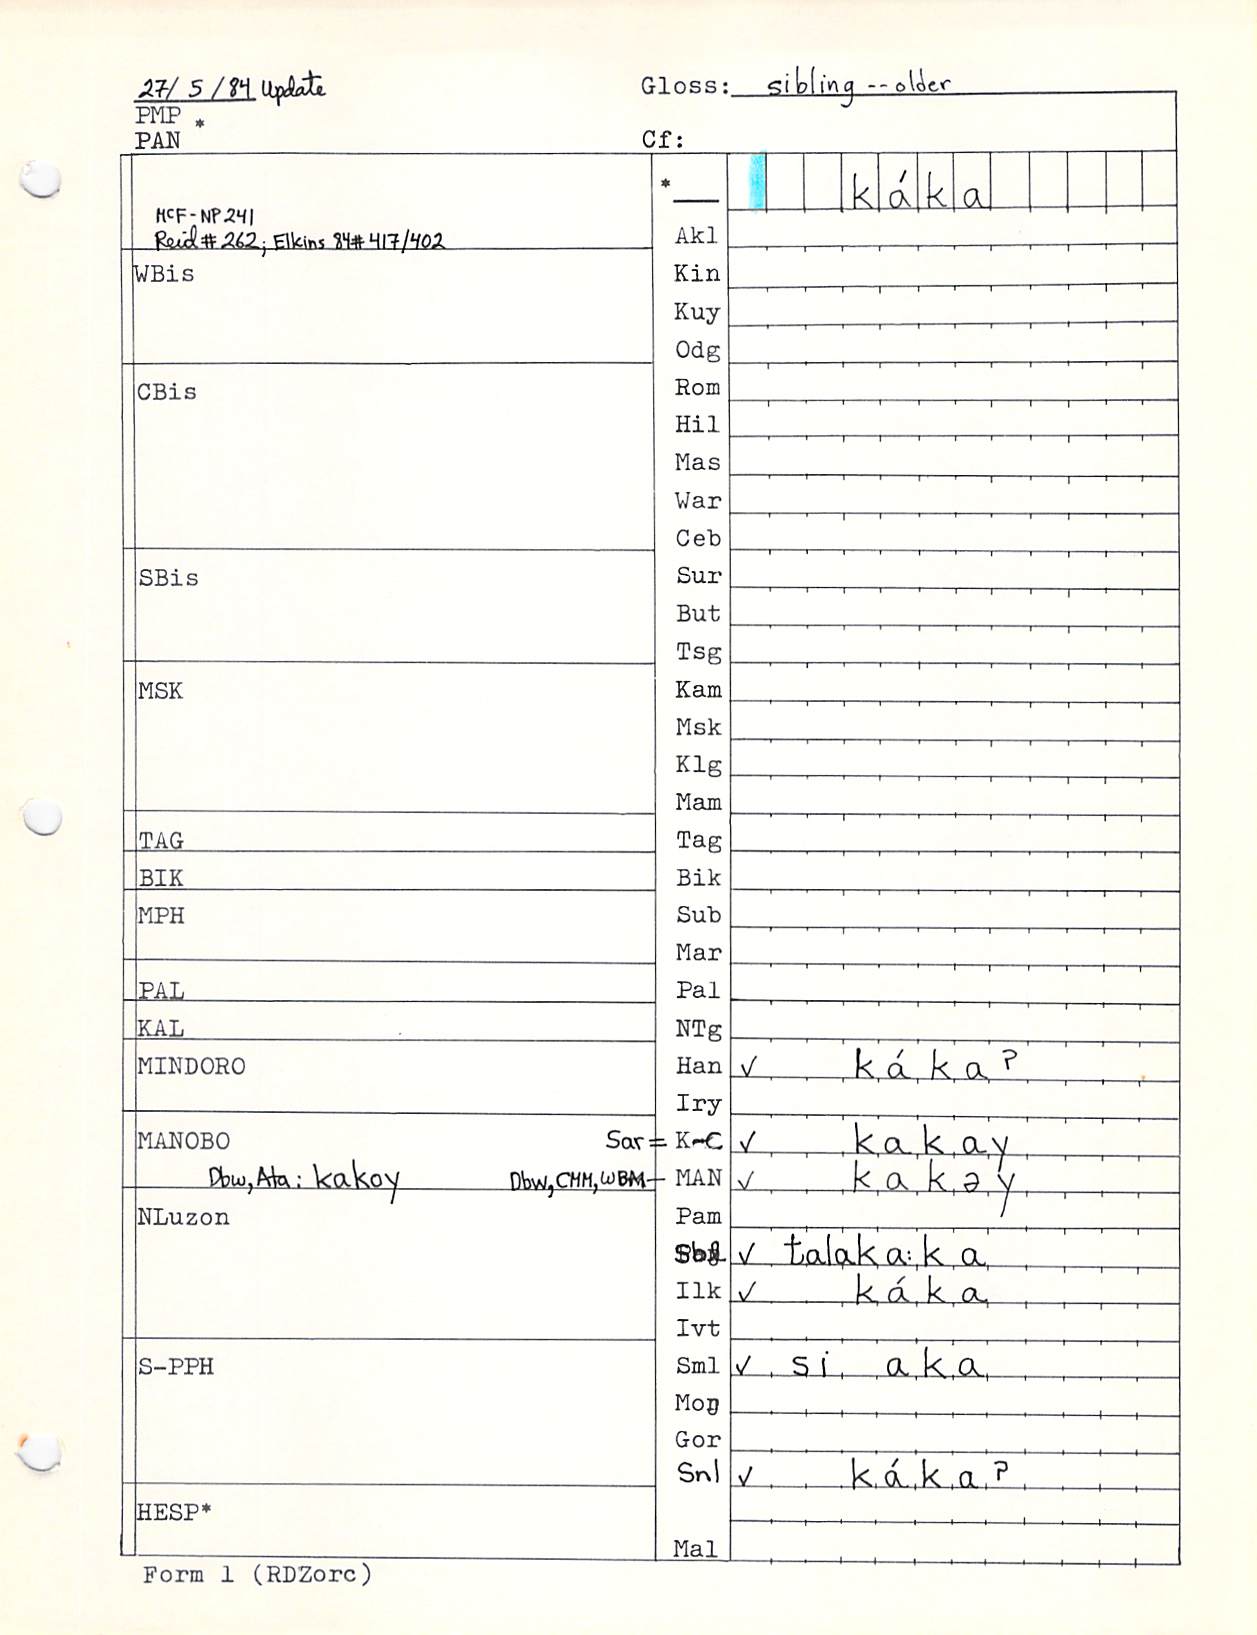 27/5/84 Update
Gloss: sibling -- older
PMP *
PAN
Cf:
* káka
MCF-NP 241
Reid # 262; Elkins 84# 417/402
Akl
WBis
Kin
Kuy
Odg
CBis
Rom
Hil
Mas
War
Ceb
SBis
Sur
But
Tsg
MSK
Kam
Msk
Klg
Mam
TAG
Tag
BIK
Bik
MPH
Sub
Mar
PAL
Pal
KAL
NTg
MINDORO
Han ✓ kákaʔ
Iry
MANOBO
Sar = K-C ✓ kakay
Dbw, Ata: kakoy
Dbw, CMM, WBM — MAN ✓ kakəy
NLuzon
Pam
✓ talaka:ka
Ilk ✓ káka
Ivt
S-PPH
Sml ✓ si aka
Moŋ
Gor
Snl ✓ kákaʔ
HESP*
Mal
Form 1 (RDZorc)